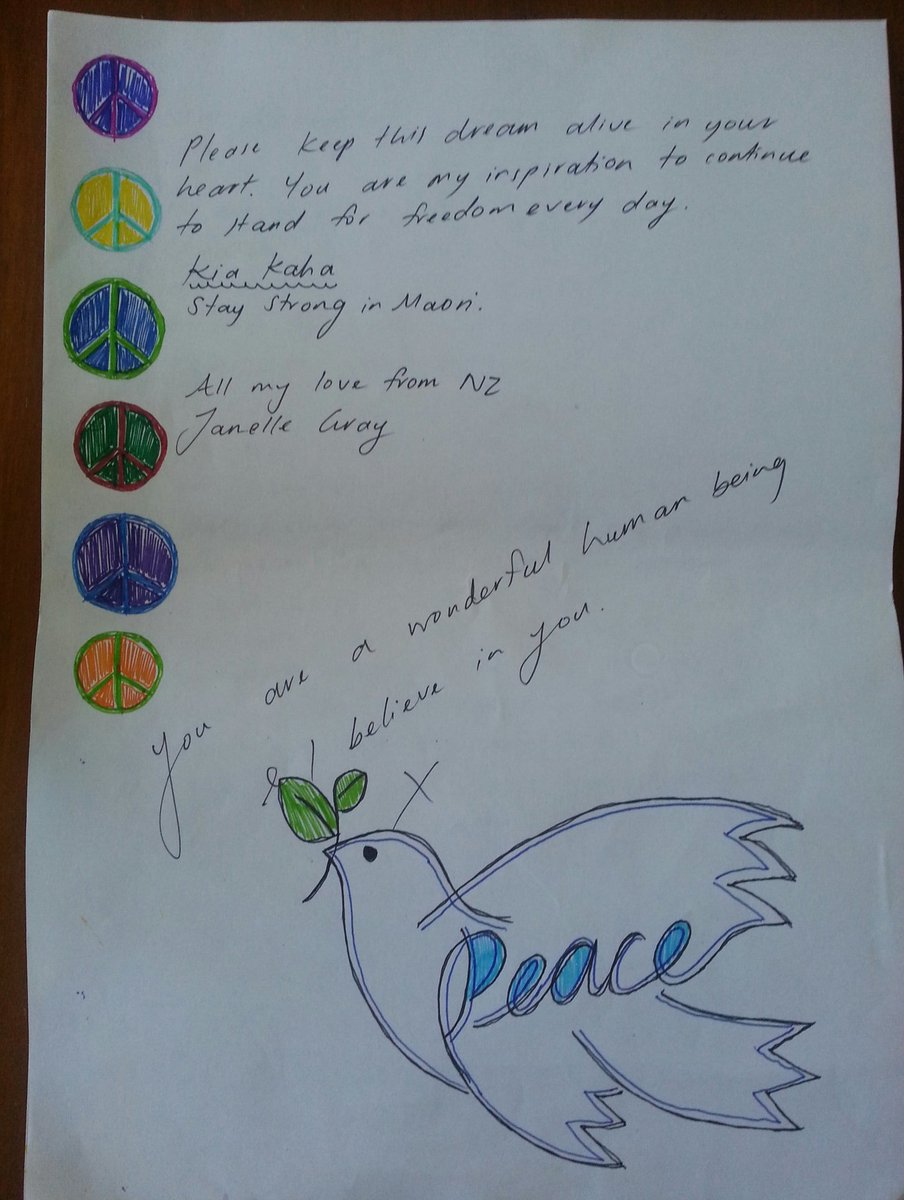 Please keep this dream alive in your
heart. You are my inspiration to continue
to stand for freedom every day.
Kia Kaha
Stay strong in Maori.
All my love from NZ
Janelle Gray
You are a wonderful human being
& I believe in you.
X
Peace